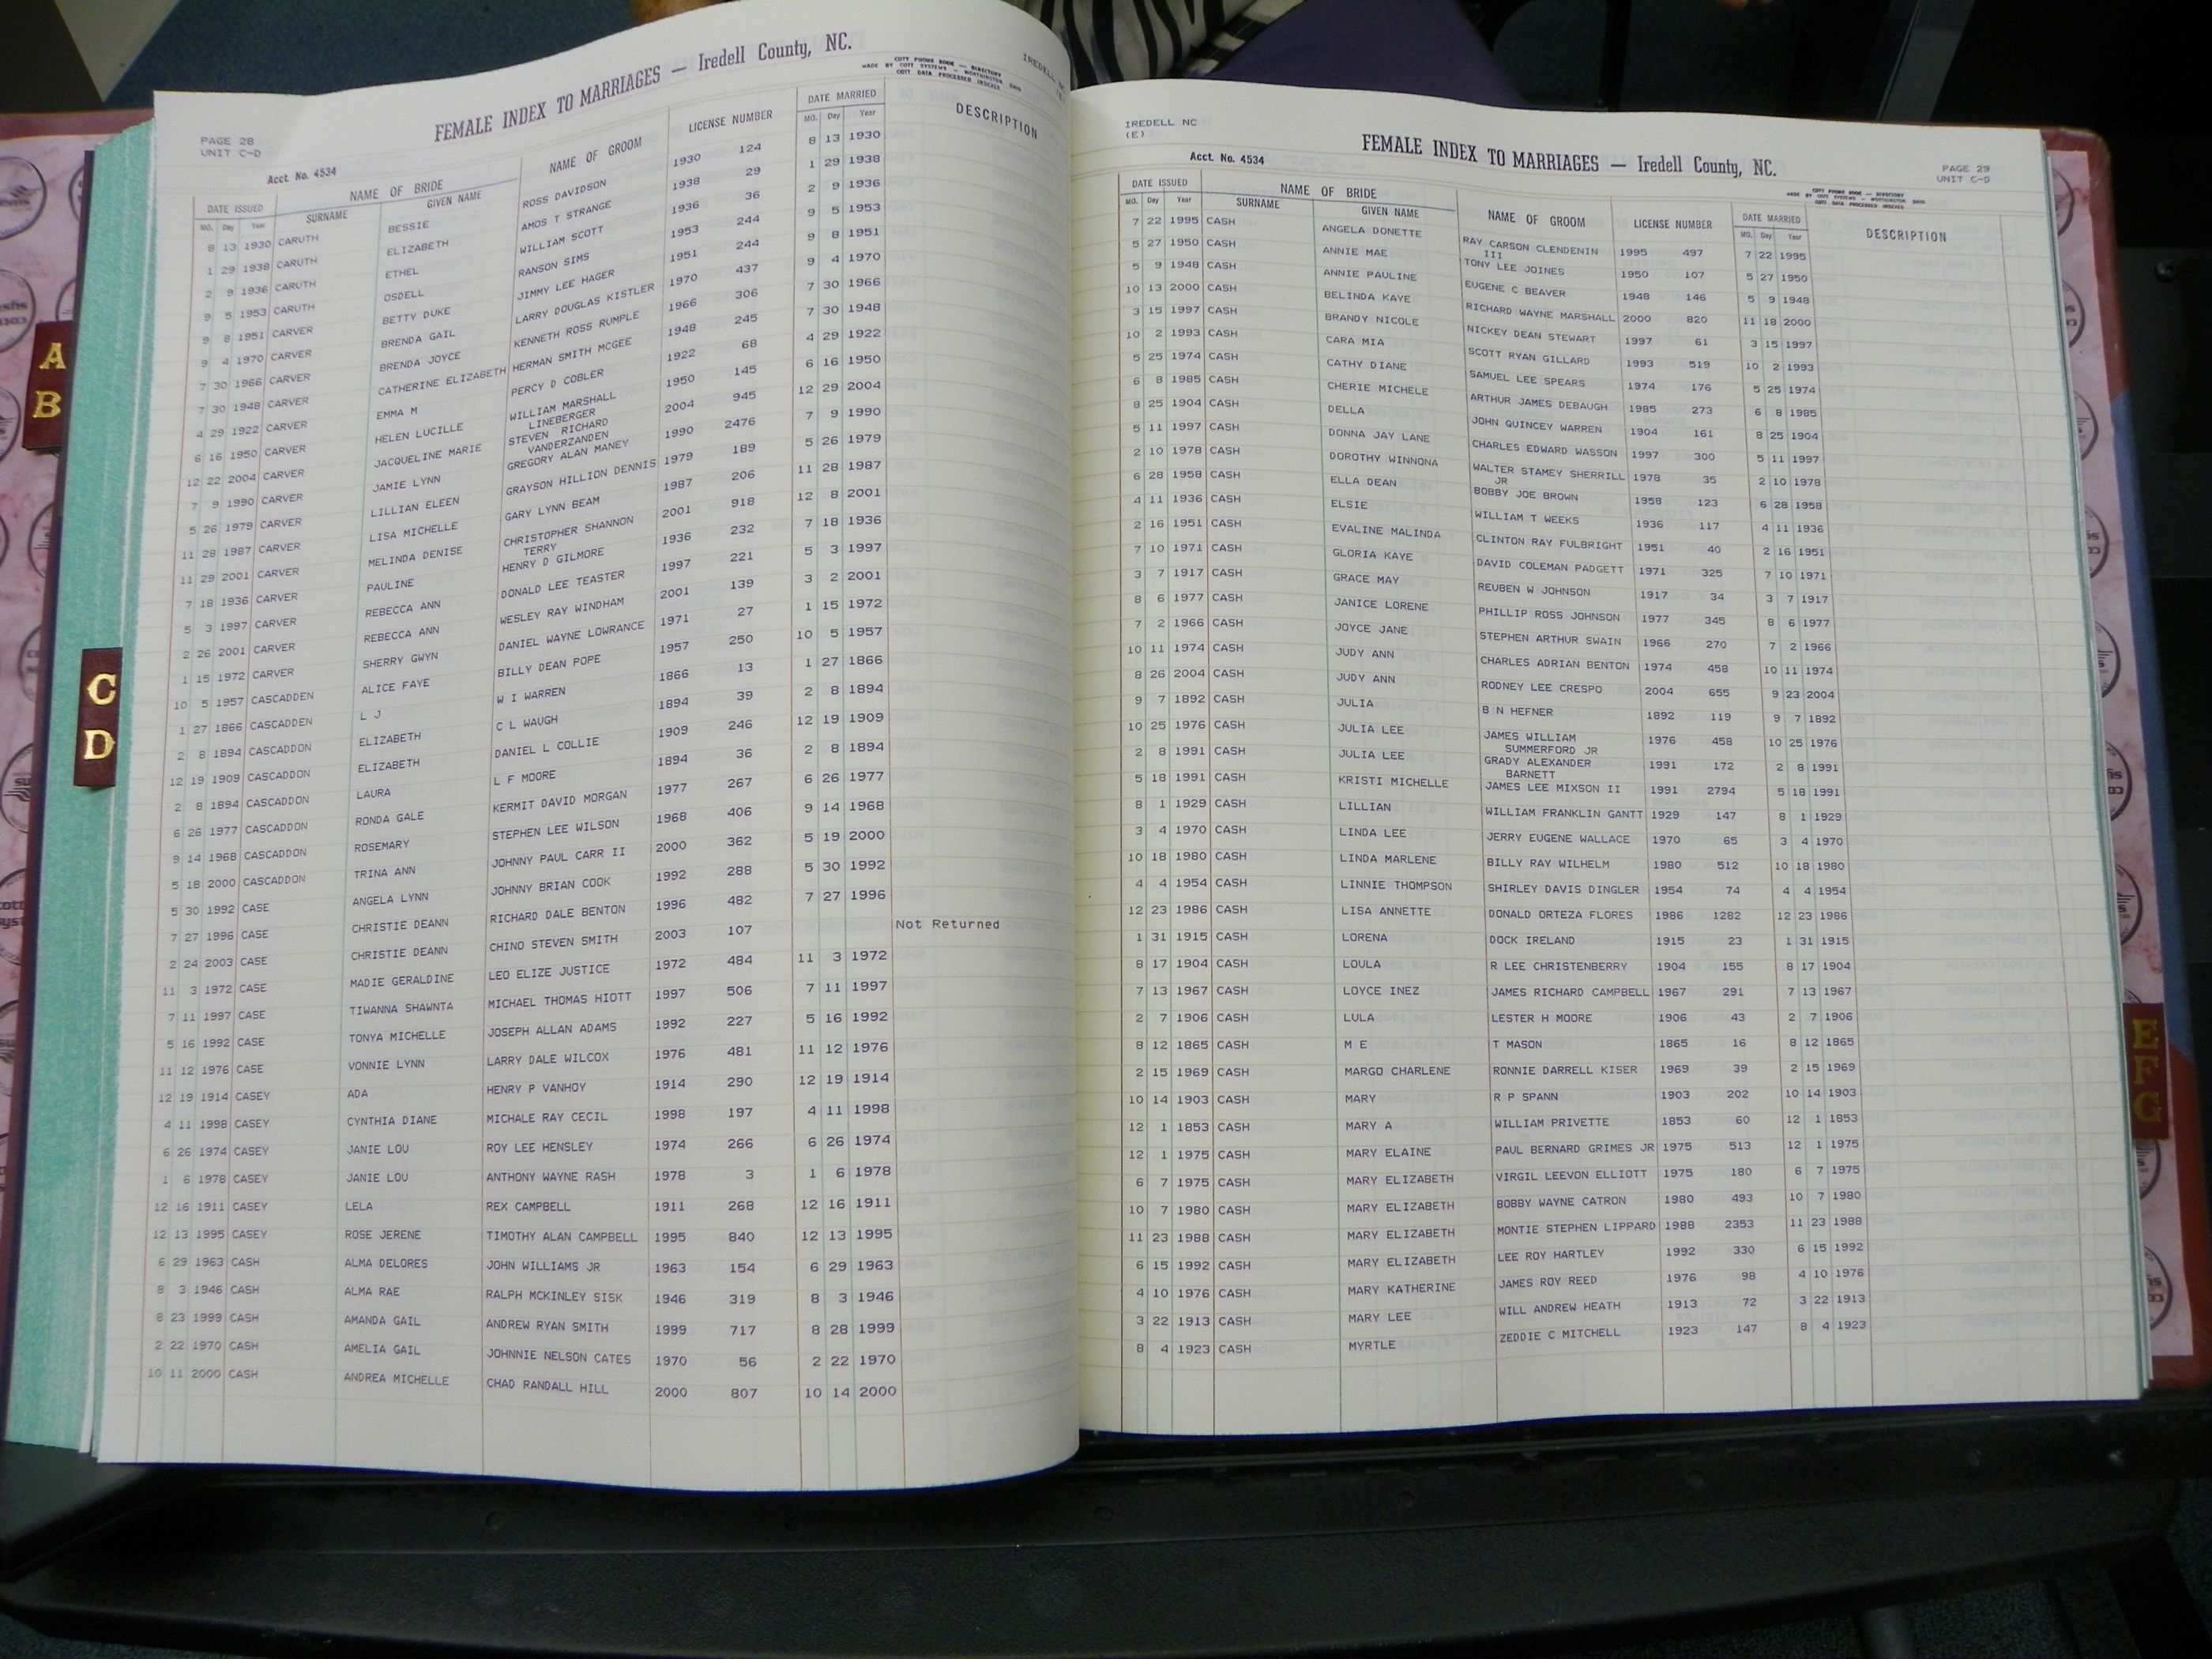 FEMALE INDEX TO MARRIAGES — Iredell County, NC.
MADE BY COTT SYSTEMS — WORTHINGTON OHIO
COTT DATA PROCESSED INDEXES
PAGE 28
UNIT C-D
Acct. No. 4534
DATE ISSUED NAME OF BRIDE NAME OF GROOM LICENSE NUMBER DATE MARRIED DESCRIPTION
MO. Day Year SURNAME GIVEN NAME MO. Day Year
8 13 1930 CARUTH BESSIE ROSS DAVIDSON 1930 124 8 13 1930
1 29 1938 CARUTH ELIZABETH AMOS T STRANGE 1938 29 1 29 1938
2 9 1936 CARUTH ETHEL WILLIAM SCOTT 1936 36 2 9 1936
9 5 1953 CARUTH OSDELL RANSON SIMS 1953 244 9 5 1953
9 8 1951 CARVER BETTY DUKE JIMMY LEE HAGER 1951 244 9 8 1951
9 4 1970 CARVER BRENDA GAIL LARRY DOUGLAS KISTLER 1970 437 9 4 1970
7 30 1966 CARVER BRENDA JOYCE KENNETH ROSS RUMPLE 1966 306 7 30 1966
7 30 1948 CARVER CATHERINE ELIZABETH HERMAN SMITH MCGEE 1948 245 7 30 1948
4 29 1922 CARVER EMMA M PERCY D COBLER 1922 68 4 29 1922
6 16 1950 CARVER HELEN LUCILLE WILLIAM MARSHALL 1950 145 6 16 1950
LINEBERGER
12 22 2004 CARVER JACQUELINE MARIE STEVEN RICHARD 2004 945 12 29 2004
VANDERZANDEN
7 9 1990 CARVER JAMIE LYNN GREGORY ALAN MANEY 1990 2476 7 9 1990
5 26 1979 CARVER LILLIAN EILEEN GRAYSON HILLION DENNIS 1979 189 5 26 1979
11 28 1987 CARVER LISA MICHELLE GARY LYNN BEAM 1987 206 11 28 1987
11 29 2001 CARVER MELINDA DENISE CHRISTOPHER SHANNON 2001 918 12 8 2001
TERRY
7 18 1936 CARVER PAULINE HENRY D GILMORE 1936 232 7 18 1936
5 3 1997 CARVER REBECCA ANN DONALD LEE TEASTER 1997 221 5 3 1997
2 26 2001 CARVER REBECCA ANN WESLEY RAY WINDHAM 2001 139 3 2 2001
1 15 1972 CARVER SHERRY GWYN DANIEL WAYNE LOWRANCE 1971 27 1 15 1972
10 5 1957 CASCADDEN ALICE FAYE BILLY DEAN POPE 1957 250 10 5 1957
1 27 1866 CASCADDEN L J W I WARREN 1866 13 1 27 1866
2 8 1894 CASCADDON ELIZABETH C L WAUGH 1894 39 2 8 1894
12 19 1909 CASCADDON ELIZABETH DANIEL L COLLIE 1909 246 12 19 1909
2 8 1894 CASCADDON LAURA L F MOORE 1894 36 2 8 1894
6 26 1977 CASCADDON RONDA GALE KERMIT DAVID MORGAN 1977 267 6 26 1977
9 14 1968 CASCADDON ROSEMARY STEPHEN LEE WILSON 1968 406 9 14 1968
5 18 2000 CASCADDON TRINA ANN JOHNNY PAUL CARR II 2000 362 5 19 2000
5 30 1992 CASE ANGELA LYNN JOHNNY BRIAN COOK 1992 288 5 30 1992
7 27 1996 CASE CHRISTIE DEANN RICHARD DALE BENTON 1996 482 7 27 1996
2 24 2003 CASE CHRISTIE DEANN CHINO STEVEN SMITH 2003 107 Not Returned
11 3 1972 CASE MADIE GERALDINE LEO ELIZE JUSTICE 1972 484 11 3 1972
7 11 1997 CASE TIWANNA SHAWNTA MICHAEL THOMAS HIOTT 1997 506 7 11 1997
5 16 1992 CASE TONYA MICHELLE JOSEPH ALLAN ADAMS 1992 227 5 16 1992
11 12 1976 CASE VONNIE LYNN LARRY DALE WILCOX 1976 481 11 12 1976
12 19 1914 CASEY ADA HENRY P VANHOY 1914 290 12 19 1914
4 11 1998 CASEY CYNTHIA DIANE MICHALE RAY CECIL 1998 197 4 11 1998
6 26 1974 CASEY JANIE LOU ROY LEE HENSLEY 1974 266 6 26 1974
1 6 1978 CASEY JANIE LOU ANTHONY WAYNE RASH 1978 3 1 6 1978
12 16 1911 CASEY LELA REX CAMPBELL 1911 268 12 16 1911
12 13 1995 CASEY ROSE JERENE TIMOTHY ALAN CAMPBELL 1995 840 12 13 1995
6 29 1963 CASH ALMA DELORES JOHN WILLIAMS JR 1963 154 6 29 1963
8 3 1946 CASH ALMA RAE RALPH MCKINLEY SISK 1946 319 8 3 1946
8 23 1999 CASH AMANDA GAIL ANDREW RYAN SMITH 1999 717 8 28 1999
2 22 1970 CASH AMELIA GAIL JOHNNIE NELSON CATES 1970 56 2 22 1970
10 11 2000 CASH ANDREA MICHELLE CHAD RANDALL HILL 2000 807 10 14 2000
A
B
C
D
IREDELL NC
(E)
Acct. No. 4534
FEMALE INDEX TO MARRIAGES — Iredell County, NC.
PAGE 29
UNIT C-D
MADE BY COTT SYSTEMS — WORTHINGTON OHIO
COTT DATA PROCESSED INDEXES
DATE ISSUED NAME OF BRIDE NAME OF GROOM LICENSE NUMBER DATE MARRIED DESCRIPTION
MO. Day Year SURNAME GIVEN NAME MO. Day Year
7 22 1995 CASH ANGELA DONETTE RAY CARSON CLENDENIN 1995 497 7 22 1995
III
5 27 1950 CASH ANNIE MAE TONY LEE JOINES 1950 107 5 27 1950
5 9 1948 CASH ANNIE PAULINE EUGENE C BEAVER 1948 146 5 9 1948
10 13 2000 CASH BELINDA KAYE RICHARD WAYNE MARSHALL 2000 820 11 18 2000
3 15 1997 CASH BRANDY NICOLE NICKEY DEAN STEWART 1997 61 3 15 1997
10 2 1993 CASH CARA MIA SCOTT RYAN GILLARD 1993 519 10 2 1993
5 25 1974 CASH CATHY DIANE SAMUEL LEE SPEARS 1974 176 5 25 1974
6 8 1985 CASH CHERIE MICHELE ARTHUR JAMES DEBAUGH 1985 273 6 8 1985
8 25 1904 CASH DELLA JOHN QUINCEY WARREN 1904 161 8 25 1904
5 11 1997 CASH DONNA JAY LANE CHARLES EDWARD WASSON 1997 300 5 11 1997
2 10 1978 CASH DOROTHY WINNONA WALTER STAMEY SHERRILL 1978 35 2 10 1978
JR
6 28 1958 CASH ELLA DEAN BOBBY JOE BROWN 1958 123 6 28 1958
4 11 1936 CASH ELSIE WILLIAM T WEEKS 1936 117 4 11 1936
2 16 1951 CASH EVALINE MALINDA CLINTON RAY FULBRIGHT 1951 40 2 16 1951
7 10 1971 CASH GLORIA KAYE DAVID COLEMAN PADGETT 1971 325 7 10 1971
3 7 1917 CASH GRACE MAY REUBEN W JOHNSON 1917 34 3 7 1917
8 6 1977 CASH JANICE LORENE PHILLIP ROSS JOHNSON 1977 345 8 6 1977
7 2 1966 CASH JOYCE JANE STEPHEN ARTHUR SWAIN 1966 270 7 2 1966
10 11 1974 CASH JUDY ANN CHARLES ADRIAN BENTON 1974 458 10 11 1974
8 26 2004 CASH JUDY ANN RODNEY LEE CRESPO 2004 655 9 23 2004
9 7 1892 CASH JULIA B N HEFNER 1892 119 9 7 1892
10 25 1976 CASH JULIA LEE JAMES WILLIAM 1976 458 10 25 1976
SUMMERFORD JR
2 8 1991 CASH JULIA LEE GRADY ALEXANDER 1991 172 2 8 1991
BARNETT
5 18 1991 CASH KRISTI MICHELLE JAMES LEE MIXSON II 1991 2794 5 18 1991
8 1 1929 CASH LILLIAN WILLIAM FRANKLIN GANTT 1929 147 8 1 1929
3 4 1970 CASH LINDA LEE JERRY EUGENE WALLACE 1970 65 3 4 1970
10 18 1980 CASH LINDA MARLENE BILLY RAY WILHELM 1980 512 10 18 1980
4 4 1954 CASH LINNIE THOMPSON SHIRLEY DAVIS DINGLER 1954 74 4 4 1954
12 23 1986 CASH LISA ANNETTE DONALD ORTEZA FLORES 1986 1282 12 23 1986
1 31 1915 CASH LORENA DOCK IRELAND 1915 23 1 31 1915
8 17 1904 CASH LOULA R LEE CHRISTENBERRY 1904 155 8 17 1904
7 13 1967 CASH LOYCE INEZ JAMES RICHARD CAMPBELL 1967 291 7 13 1967
2 7 1906 CASH LULA LESTER H MOORE 1906 43 2 7 1906
8 12 1865 CASH M E T MASON 1865 16 8 12 1865
2 15 1969 CASH MARGO CHARLENE RONNIE DARRELL KISER 1969 39 2 15 1969
10 14 1903 CASH MARY R P SPANN 1903 202 10 14 1903
12 1 1853 CASH MARY A WILLIAM PRIVETTE 1853 60 12 1 1853
12 1 1975 CASH MARY ELAINE PAUL BERNARD GRIMES JR 1975 513 12 1 1975
6 7 1975 CASH MARY ELIZABETH VIRGIL LEEVON ELLIOTT 1975 180 6 7 1975
10 7 1980 CASH MARY ELIZABETH BOBBY WAYNE CATRON 1980 493 10 7 1980
11 23 1988 CASH MARY ELIZABETH MONTIE STEPHEN LIPPARD 1988 2353 11 23 1988
6 15 1992 CASH MARY ELIZABETH LEE ROY HARTLEY 1992 330 6 15 1992
4 10 1976 CASH MARY KATHERINE JAMES ROY REED 1976 98 4 10 1976
3 22 1913 CASH MARY LEE WILL ANDREW HEATH 1913 72 3 22 1913
8 4 1923 CASH MYRTLE ZEDDIE C MITCHELL 1923 147 8 4 1923
E
F
G